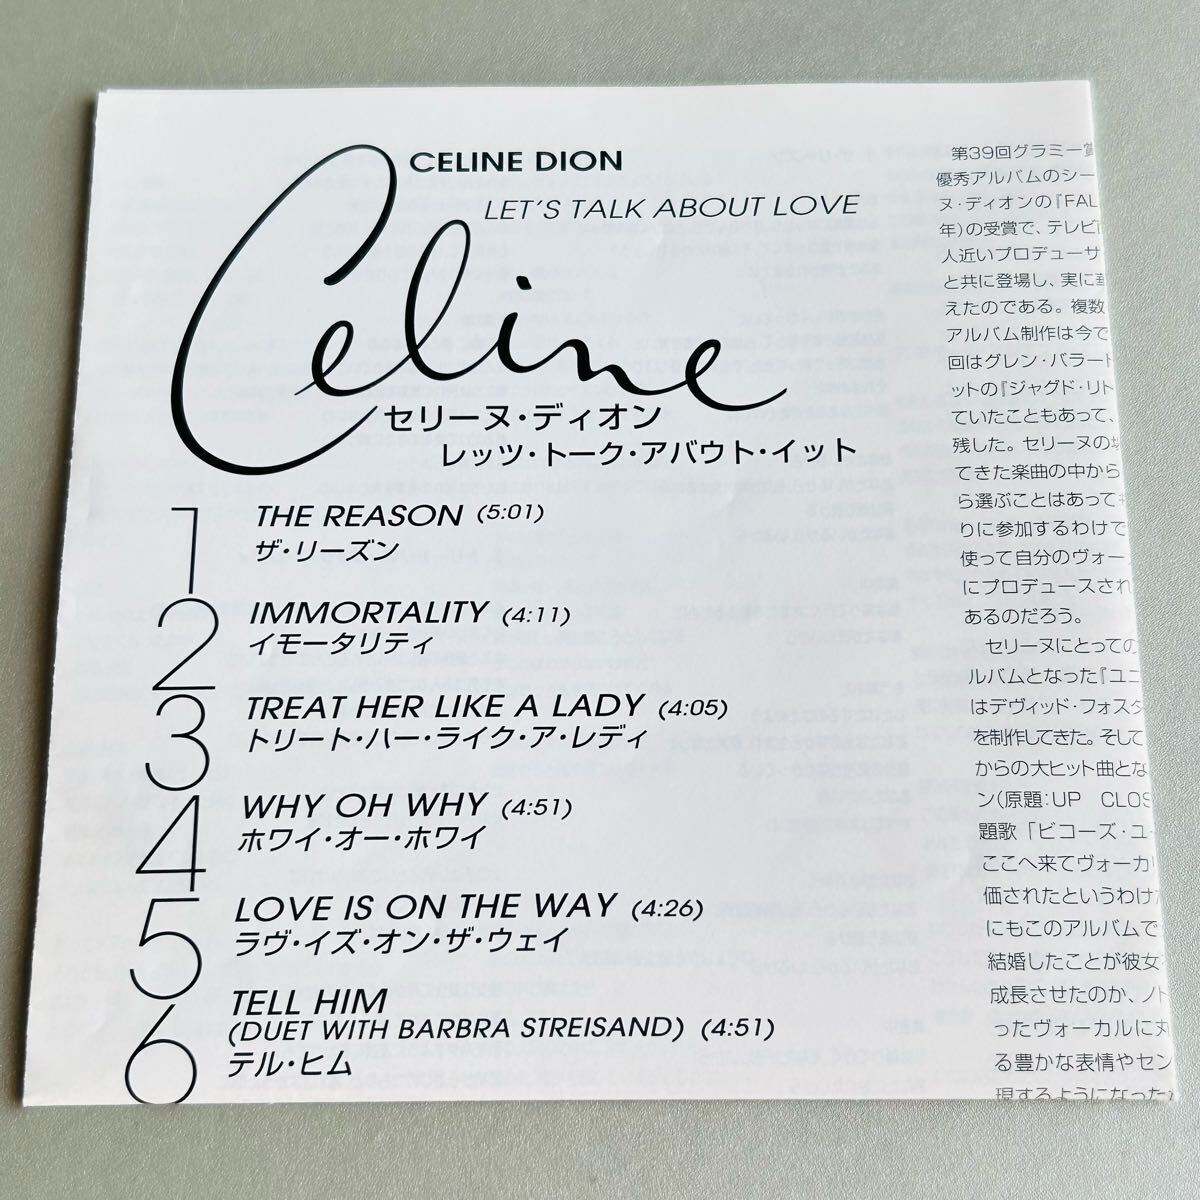 CELINE DION
LET'S TALK ABOUT LOVE
Celine
セリーヌ・ディオン
レッツ・トーク・アバウト・イット
1
THE REASON (5:01)
ザ・リーズン
2
IMMORTALITY (4:11)
イモータリティ
3
TREAT HER LIKE A LADY (4:05)
トリート・ハー・ライク・ア・レディ
4
WHY OH WHY (4:51)
ホワイ・オー・ホワイ
5
LOVE IS ON THE WAY (4:26)
ラヴ・イズ・オン・ザ・ウェイ
6
TELL HIM
(DUET WITH BARBRA STREISAND) (4:51)
テル・ヒム
第39回グラミー賞
優秀アルバムのシー
ヌ・ディオンの『FAL
年)の受賞で、テレビ
人近いプロデューサ
と共に登場し、実に
えたのである。複数
アルバム制作は今で
回はグレン・バラード
ットの『ジャグド・リト
ていたこともあって、
残した。セリーヌの場
てきた楽曲の中から
ら選ぶことはあっても
りに参加するわけで
使って自分のヴォー
にプロデュースされ
あるのだろう。
セリーヌにとっての
ルバムとなった『ユニ
はデヴィッド・フォスタ
を制作してきた。そして
からの大ヒット曲とな
ン(原題:UP CLOS
題歌「ビコーズ・ユー
ここへ来てヴォーカリ
価されたというわけだ
にもこのアルバムで
結婚したことが彼女
成長させたのか、ノド
ったヴォーカルに丸
る豊かな表情やセン
現するようになった